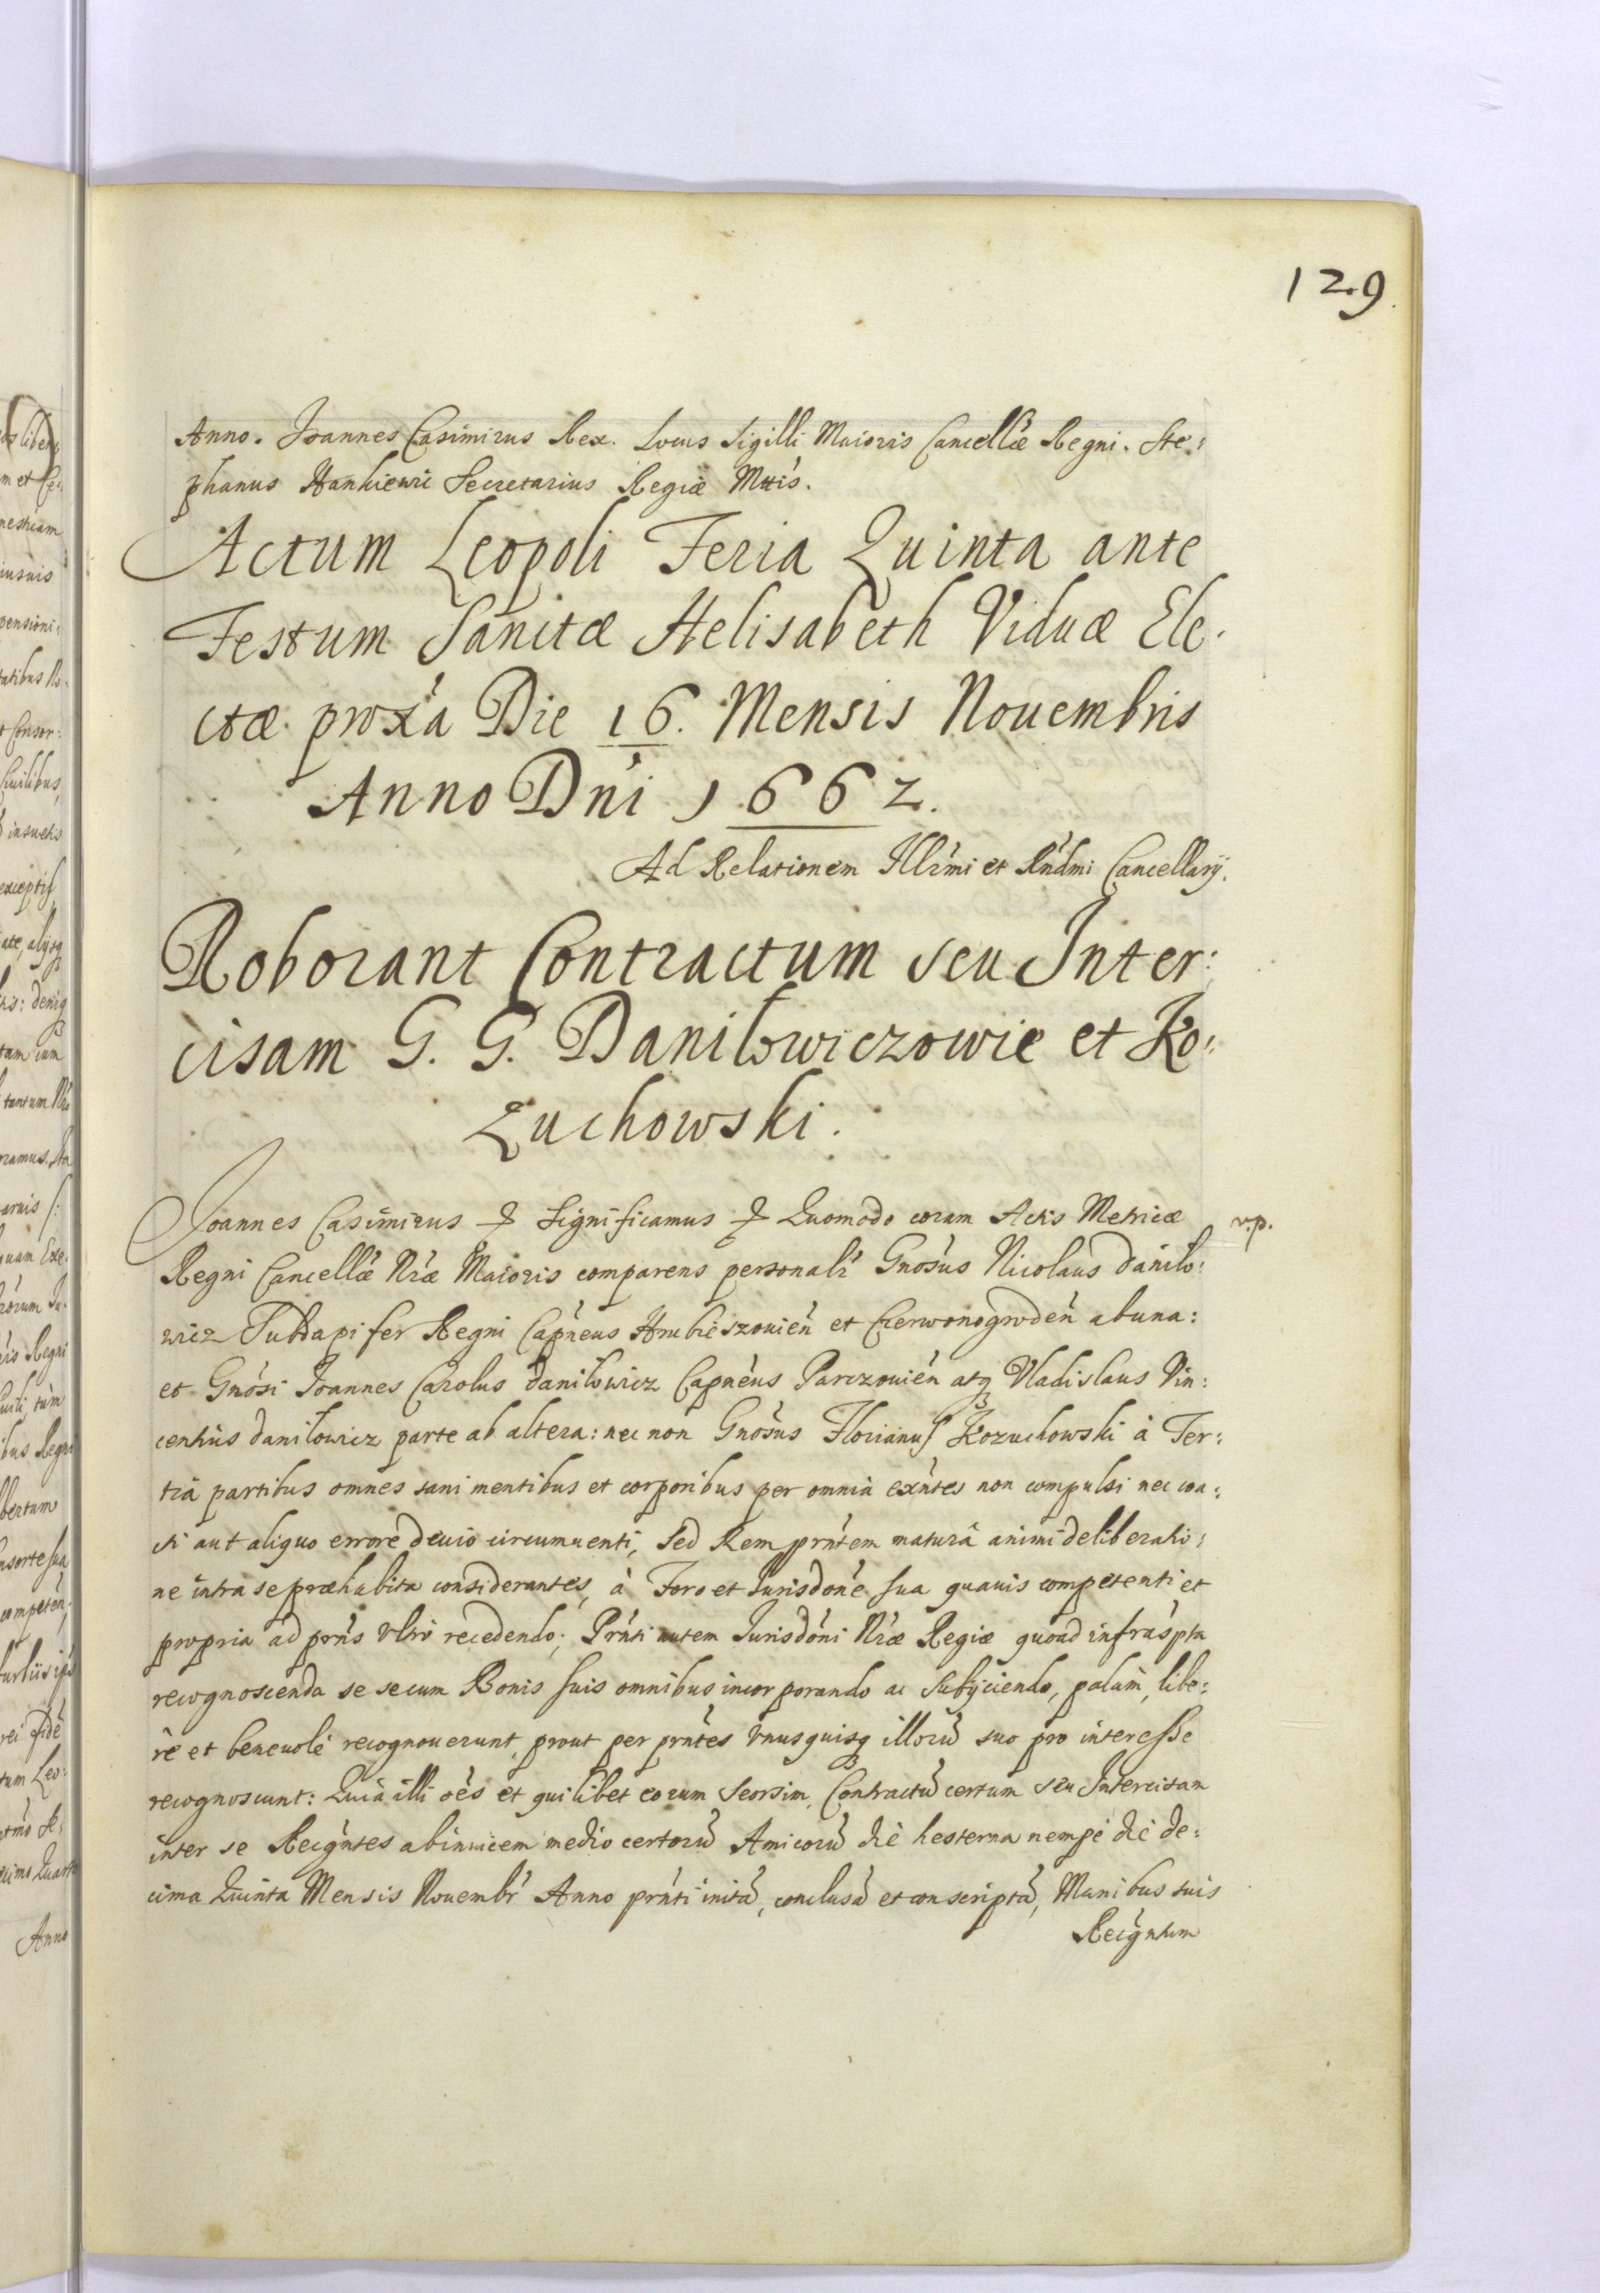 129
Anno. Joannes Casimirus Rex. Locus Sigilli Maioris Cancellæ Regni. Ste:
phanus Hankiewic Secretarius Regiæ Mttis.
Actum Leopoli Feria Quinta ante
Festum Sanctæ Helisabeth Viduæ Ele:
ctæ proxa Die 16. Mensis Nouembris
Anno Dni 1662.
Ad Relationem Illrmi et Rndmi Cancellarij.
Roborant Contractum seu Inter:
cisam G. G. Daniłowiczowie et Ko:
Zuchowski.
Joannes Casimirus Significamus Quomodo coram Actis Metricæ
v.p.
Regni Cancellæ Nræ Maioris comparens personalr Gnosus Nicolaus Danilo:
wicz Subdapifer Regni Capneus Hrubieszouien et Czerwonogroden ab una:
et Gnosi Joannes Carolus Daniłowicz Capneus Parczouien atq Vladislaus Vin:
centius Daniłowicz parte ab altera: nec non Gnosus Florianus Kozuchowski à Ter:
tia partibus omnes sani mentibus et corporibus per omnia exntes non compulsi nec coa:
cti aut aliquo errore deuio circumuenti, sed Rem prntem matura animi deliberatio:
ne intra se præhabita considerantes, à Foro et Jurisdone sua quauis competenti et
propria ad prns vltro recedendo; Prnti autem Jurisdoni Nræ Regiæ quoad infraspta
recognoscenda se secum Bonis suis omnibus incorporando ac subijciendo, palam, libe:
rè et beneuolè recognouerunt, prout per prntes vnusquisq illorū suo pro interesse
recognoscunt: Quià illi oes et quilibet eorum seorsim, Contractū certum seu Intercisam
inter se Recgntes abinuicem medio certorū Amicorū die hesterna nempè die de:
cima Quinta Mensis Nouembr Anno prnti initā, conclusā et conscriptā, Manibus suis
Recgntium